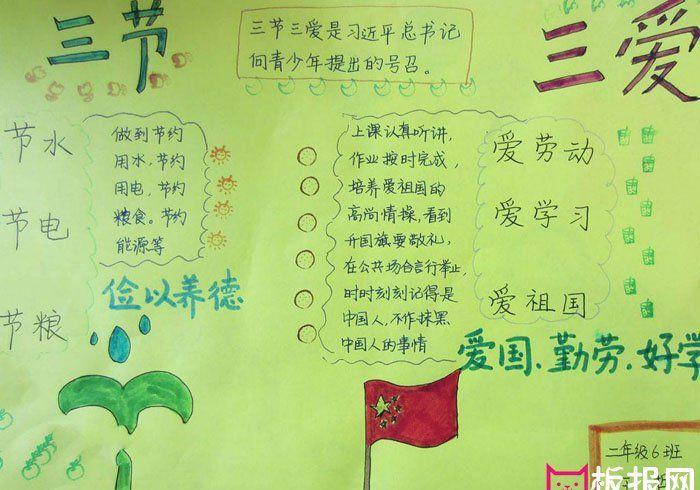 三节
三节三爱是习近平总书记
向青少年提出的号召。
三爱
节水
节电
节粮
做到节约
用水,节约
用电,节约
粮食。节约
能源等
俭以养德
上课认真听讲,
作业按时完成,
培养爱祖国的
高尚情操,看到
升国旗要敬礼,
在公共场合言行举止,
时时刻刻记得是
中国人,不作抹黑
中国人的事情
爱劳动
爱学习
爱祖国
爱国、勤劳、好学
二年级6班
板报网